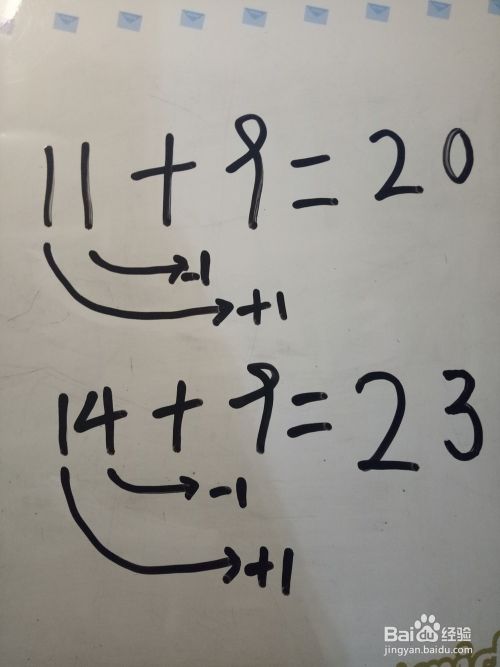 11 + 9 = 20
-1
+1
14 + 9 = 23
-1
+1
Baidu 经验
jingyan.baidu.com